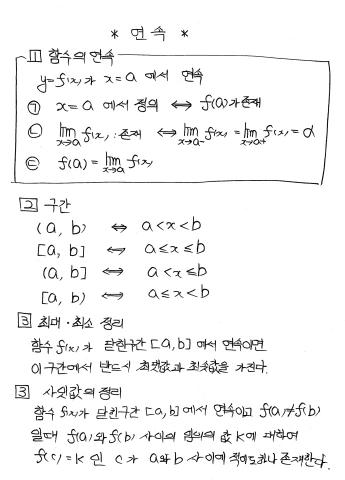 * 연속 *
1 함수의 연속
y=f(x)가 x=a 에서 연속
㉠ x=a 에서 정의 ⇔ f(a)가 존재
㉡ lim x→a f(x) : 존재 ⇔ lim x→a- f(x) = lim x→a+ f(x) = α
㉢ f(a) = lim x→a f(x)
2 구간
(a, b) ⇔ a<x<b
[a, b] ⇔ a≤x≤b
(a, b] ⇔ a<x≤b
[a, b) ⇔ a≤x<b
3 최대·최소 정리
함수 f(x)가 닫힌구간 [a, b] 에서 연속이면
이 구간에서 반드시 최댓값과 최솟값을 가진다.
3 사잇값의 정리
함수 f(x)가 닫힌구간 [a, b] 에서 연속이고 f(a)≠f(b)
일때 f(a)와 f(b) 사이의 임의의 값 k에 대하여
f(c)=k 인 c가 a와 b 사이에 적어도 하나 존재한다.